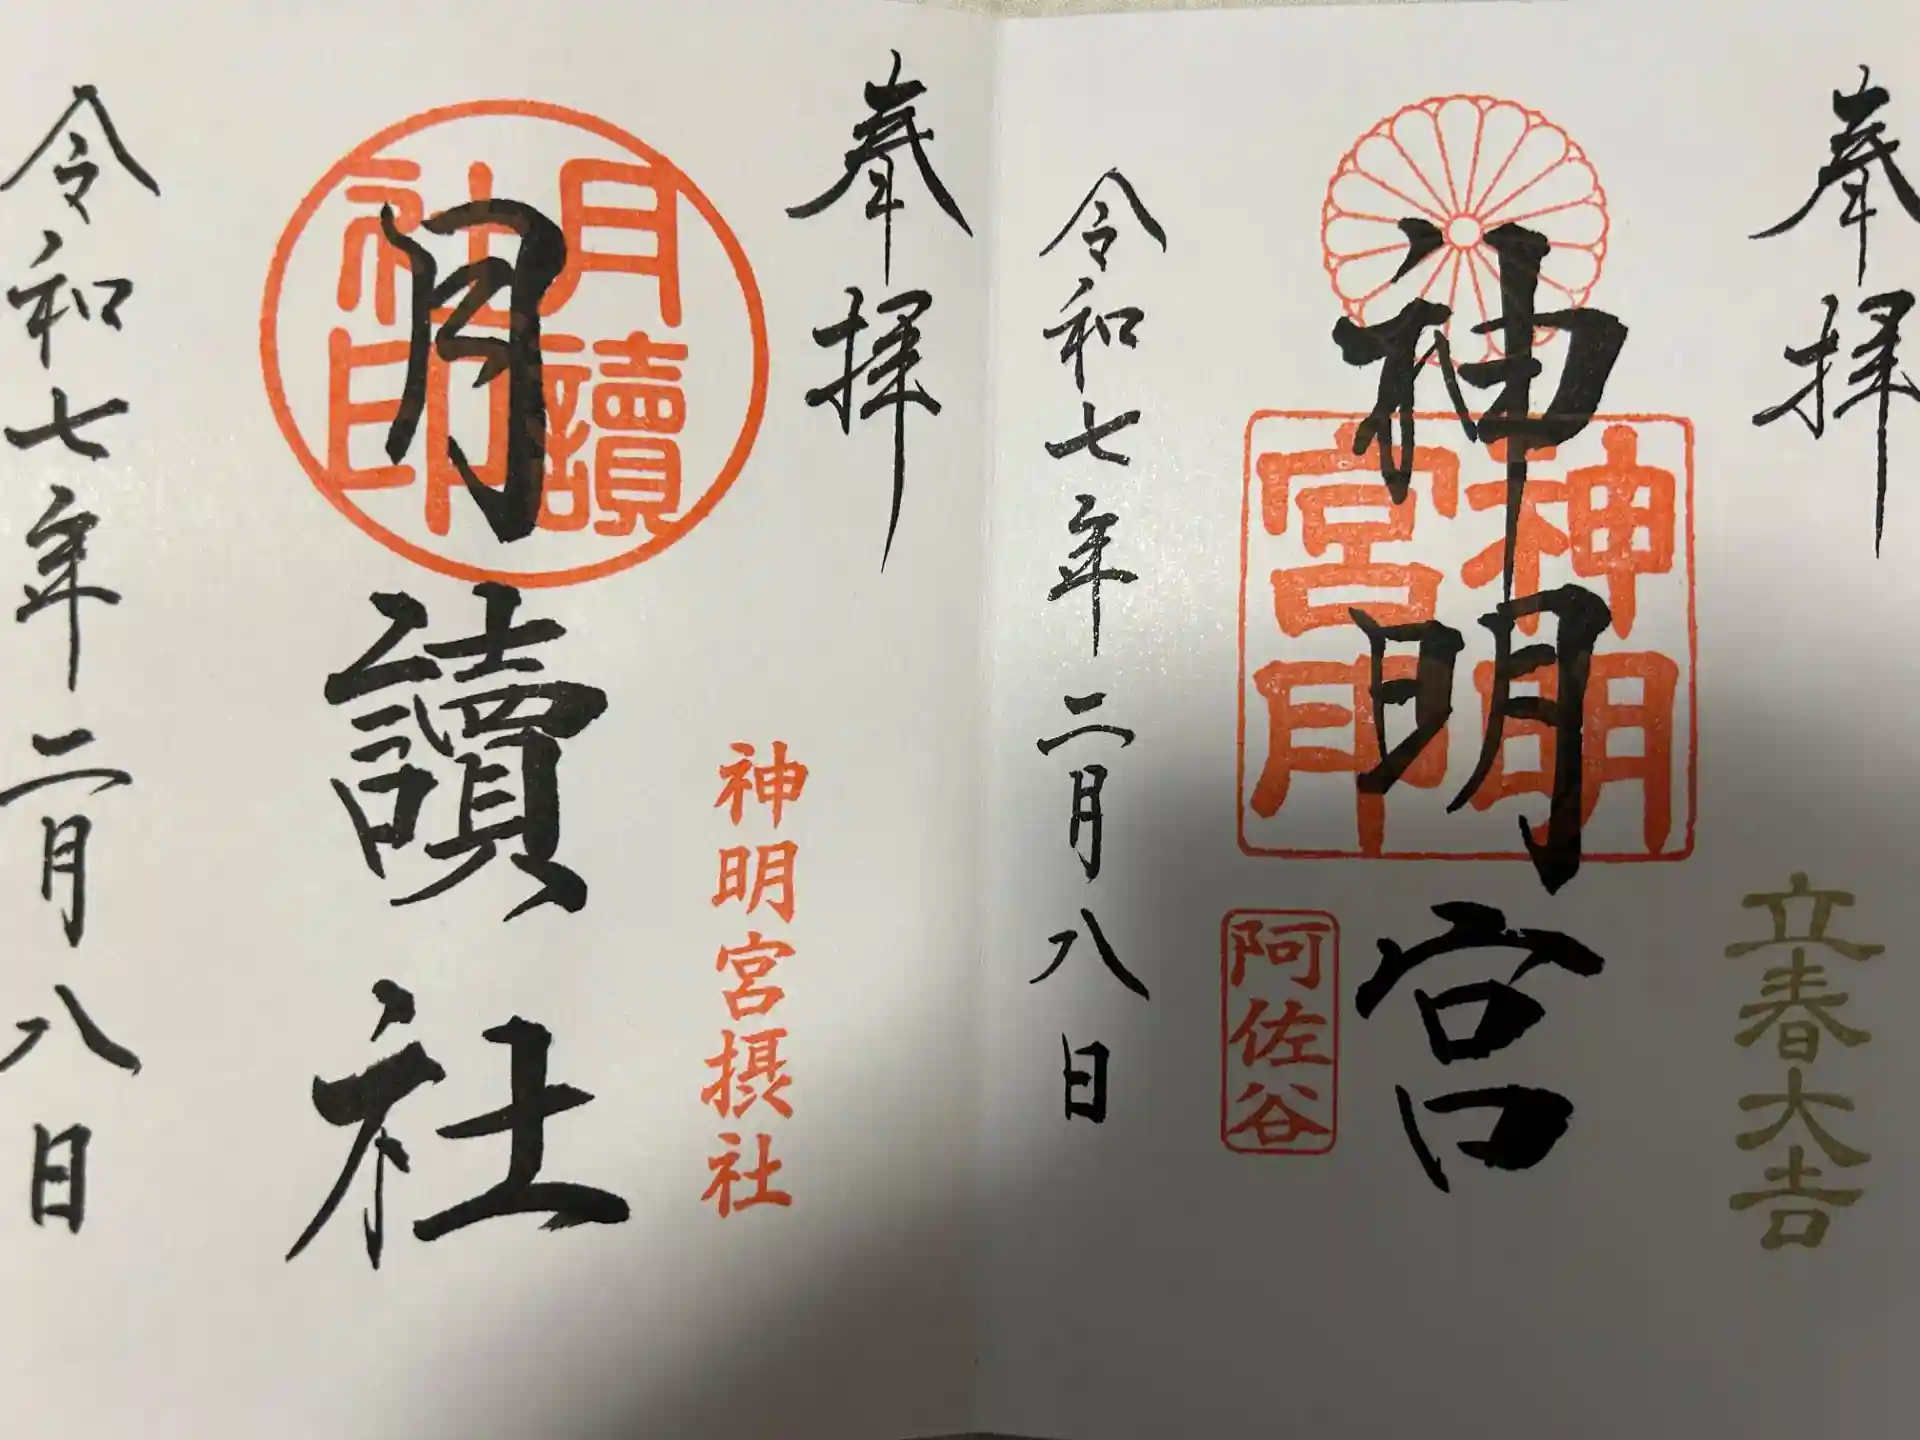 奉拝
立春大吉
神明宮
神明
宮印
阿佐谷
令和七年二月八日
奉拝
神明宮摂社
月讀社
月讀
社印
令和七年二月八日